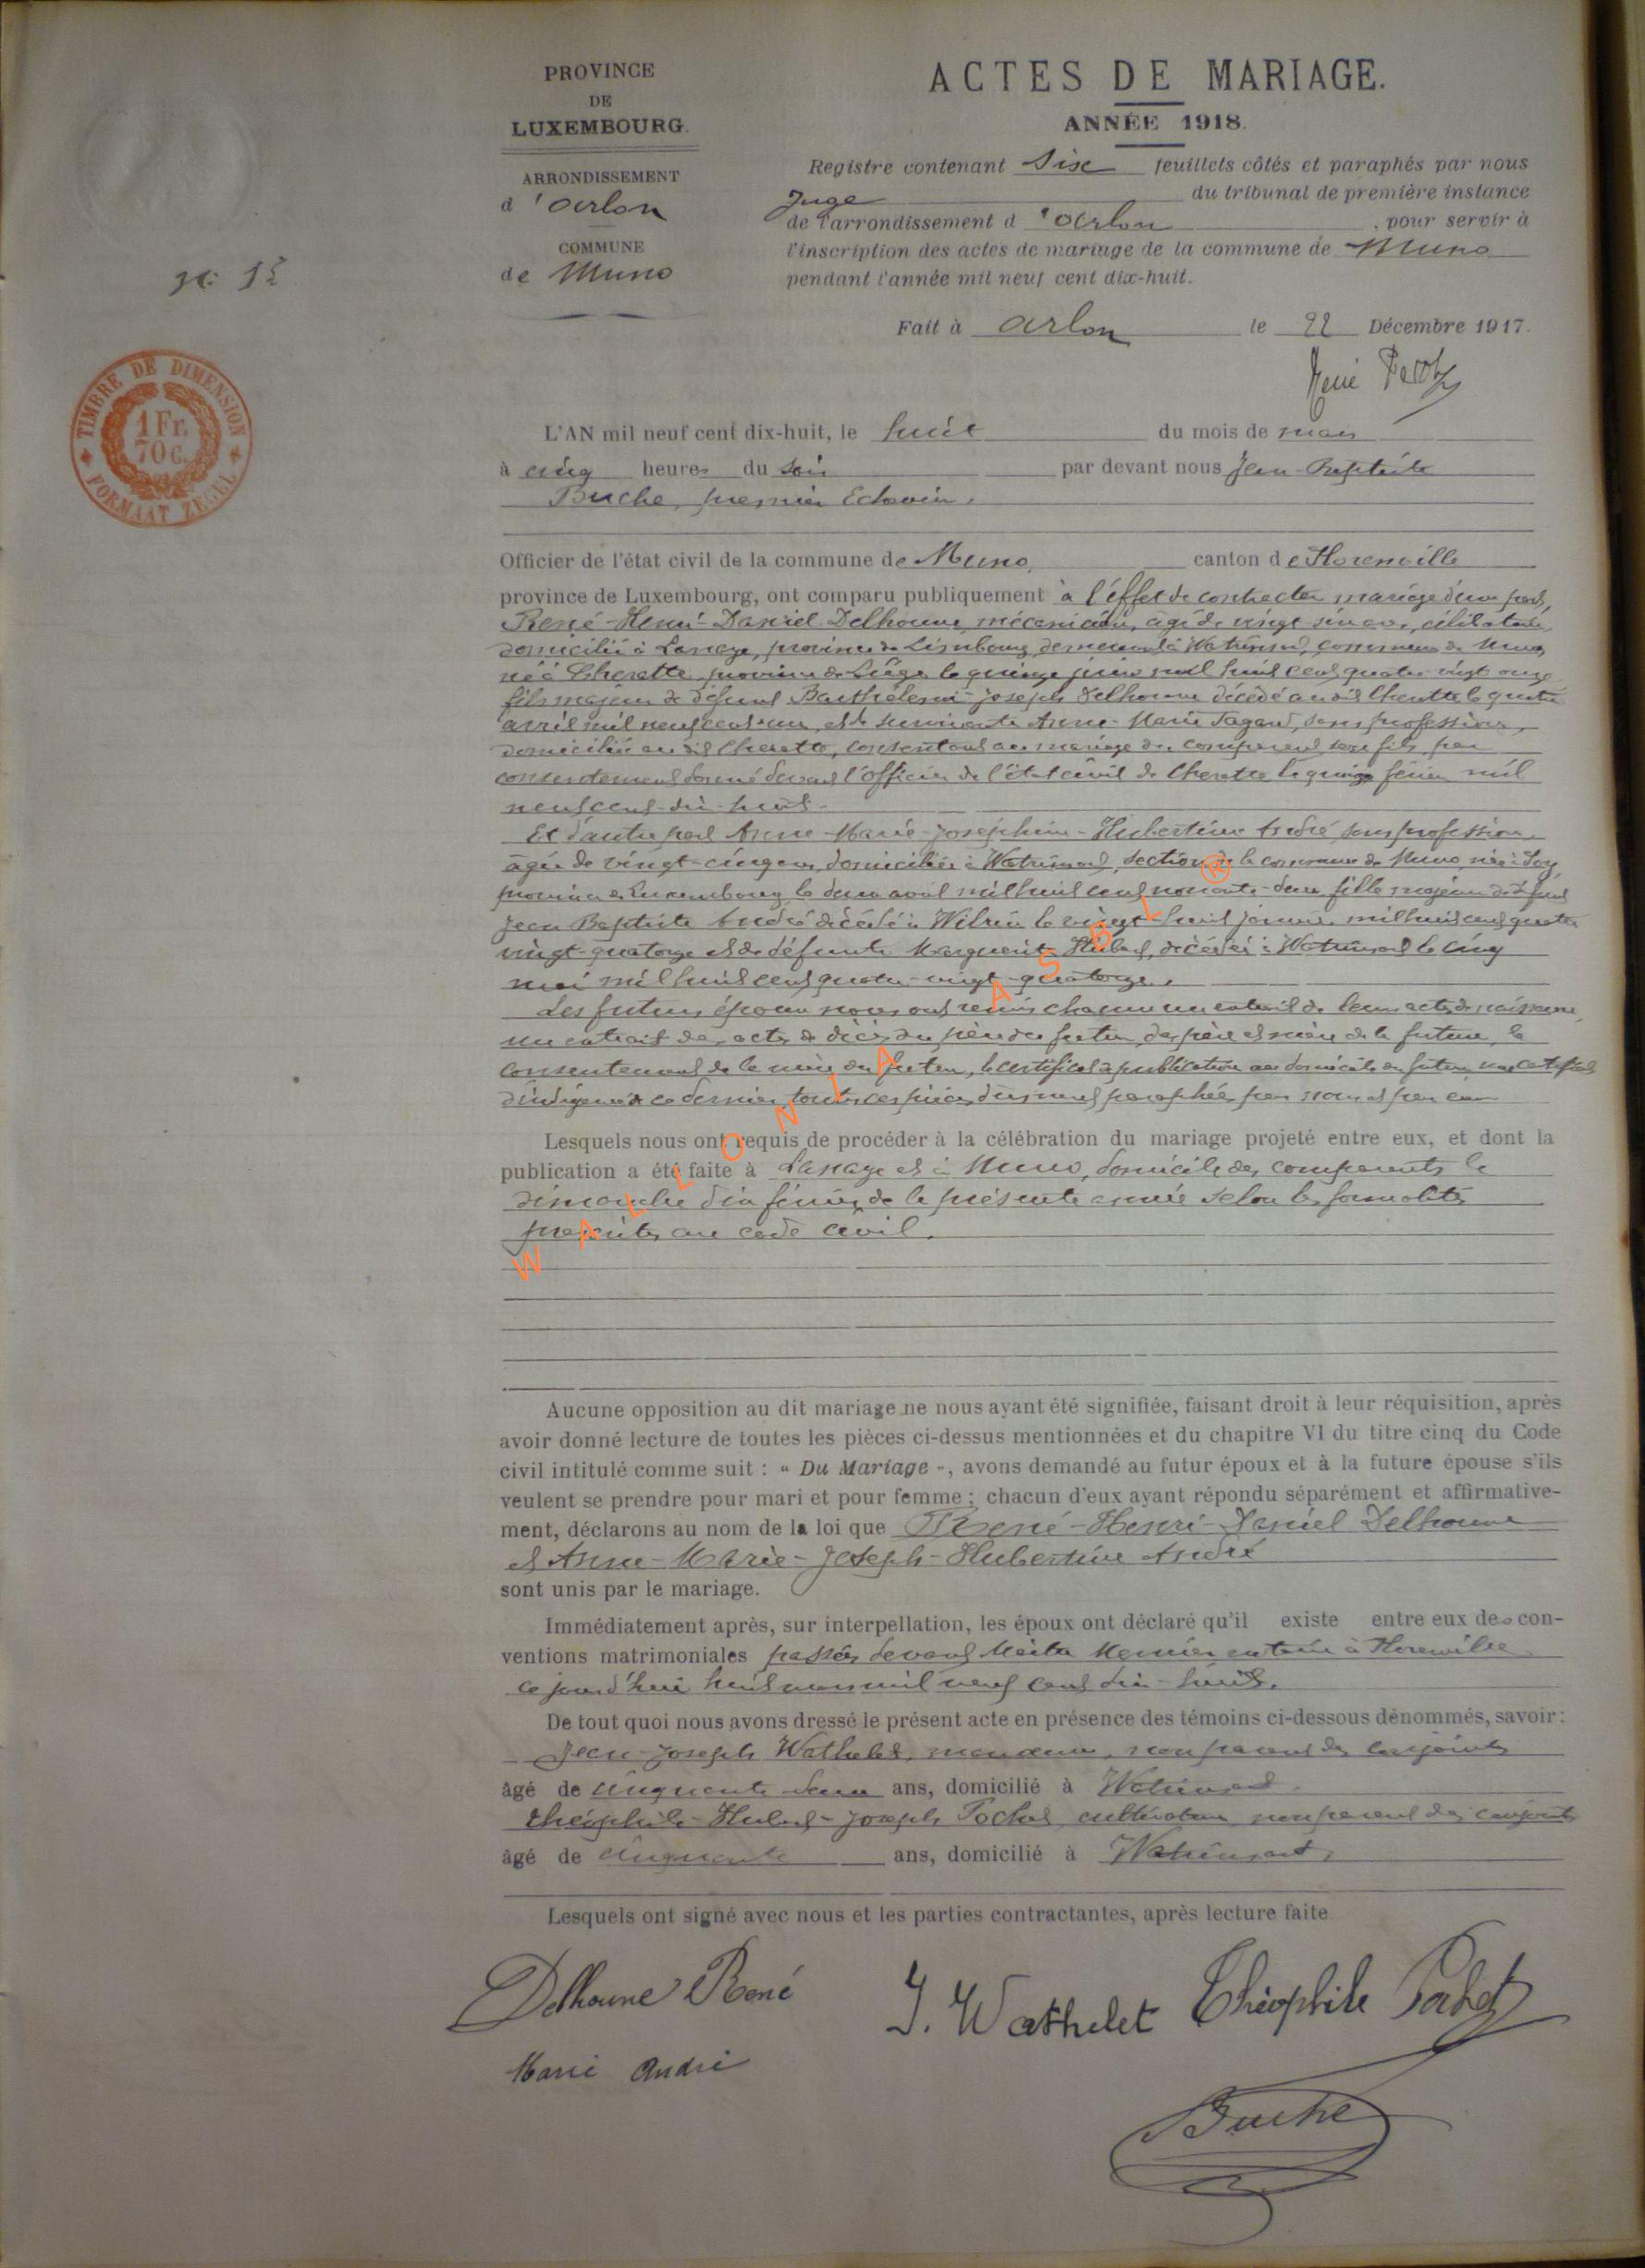 PROVINCE
DE
LUXEMBOURG.
ARRONDISSEMENT
d'Arlon
COMMUNE
de Muno
ACTES DE MARIAGE.
ANNÉE 1918.
Registre contenant Six feuillets côtés et paraphés par nous
Juge du tribunal de première instance
de l'arrondissement d'Arlon, pour servir à
l'inscription des actes de mariage de la commune de Muno
pendant l'année mil neuf cent dix-huit.
Fait à Arlon le 22 Décembre 1917.
N° 1er
TIMBRE DE DIMENSION
1 Fr. 70 c.
FORMAAT ZEGEL
L'AN mil neuf cent dix-huit, le huit du mois de mars
à cinq heures du soir par devant nous Jean-Baptiste
Buche, premier Echevin,
Officier de l'état civil de la commune de Muno, canton de Florenville
province de Luxembourg, ont comparu publiquement à l'effet de contracter mariage d'une part,
René-Henri-Daniel Delhoune, mécanicien, âgé de vingt-six ans, célibataire,
domicilié à Lanaye, province de Limbourg, demeurant à Watrinsart, commune de Muno,
né à Cheratte, province de Liège le quinze juin mil huit cent quatre-vingt-onze
fils majeur de défunt Barthélemi-Joseph Delhoune décédé au dit Cheratte le quatre
avril mil neuf cent un, et de survivante Anne-Marie Jagard, sans profession,
domiciliée au dit Cheratte, consentant au mariage du comparant son fils par
consentement donné devant l'officier de l'état civil de Cheratte le quinze février mil
neuf cent dix-huit.
Et d'autre part Anne-Marie-Joséphine-Hubertine André, sans profession
âgée de vingt-cinq ans, domiciliée à Watrinsart, section de la commune de Muno, née à Soy,
province de Luxembourg le deux avril mil huit cent nonante-deux fille majeure de défunt
Jean Baptiste André décédé à Wibrin le vingt-huit janvier mil huit cent quatre
vingt-quatorze et de défunte Marguerite Hubert, décédée à Watrinsart le cinq
mai mil huit cent quatre-vingt-quatorze.
Les futurs époux nous ont remis chacun un extrait de leurs actes de naissance,
un extrait des actes de décès du père du futur, des père et mère de la future, le
consentement de la mère du futur, le certificat de publication au domicile du futur, un certificat
d'indigénat de ce dernier, toutes ces pièces dûment paraphées par nous et par eux
Lesquels nous ont requis de procéder à la célébration du mariage projeté entre eux, et dont la
publication a été faite à Lanaye et à Muno, domicile des comparants le
dimanche dix février de la présente année selon les formalités
prescrites au code civil.
WALLONIA ASBL ®
Aucune opposition au dit mariage ne nous ayant été signifiée, faisant droit à leur réquisition, après
avoir donné lecture de toutes les pièces ci-dessus mentionnées et du chapitre VI du titre cinq du Code
civil intitulé comme suit : « Du Mariage -, avons demandé au futur époux et à la future épouse s'ils
veulent se prendre pour mari et pour femme ; chacun d'eux ayant répondu séparément et affirmative-
ment, déclarons au nom de la loi que René-Henri-Daniel Delhoune
et Anne-Marie-Joseph-Hubertine André
sont unis par le mariage.
Immédiatement après, sur interpellation, les époux ont déclaré qu'il existe entre eux des con-
ventions matrimoniales passées devant Maître notaire à Florenville
ce jourd'hui huit mars mil neuf cent dix-huit.
De tout quoi nous avons dressé le présent acte en présence des témoins ci-dessous dénommés, savoir :
Jean-Joseph Wathelet, non parent des conjoints
âgé de cinquante deux ans, domicilié à Watrinsart
Théophile-Hubert-Joseph Pochet, cultivateur, non parent des conjoints
âgé de cinquante ans, domicilié à Watrinsart,
Lesquels ont signé avec nous et les parties contractantes, après lecture faite
Delhoune René
J. Wathelet
Théophile Pochet
Marie André
Buche